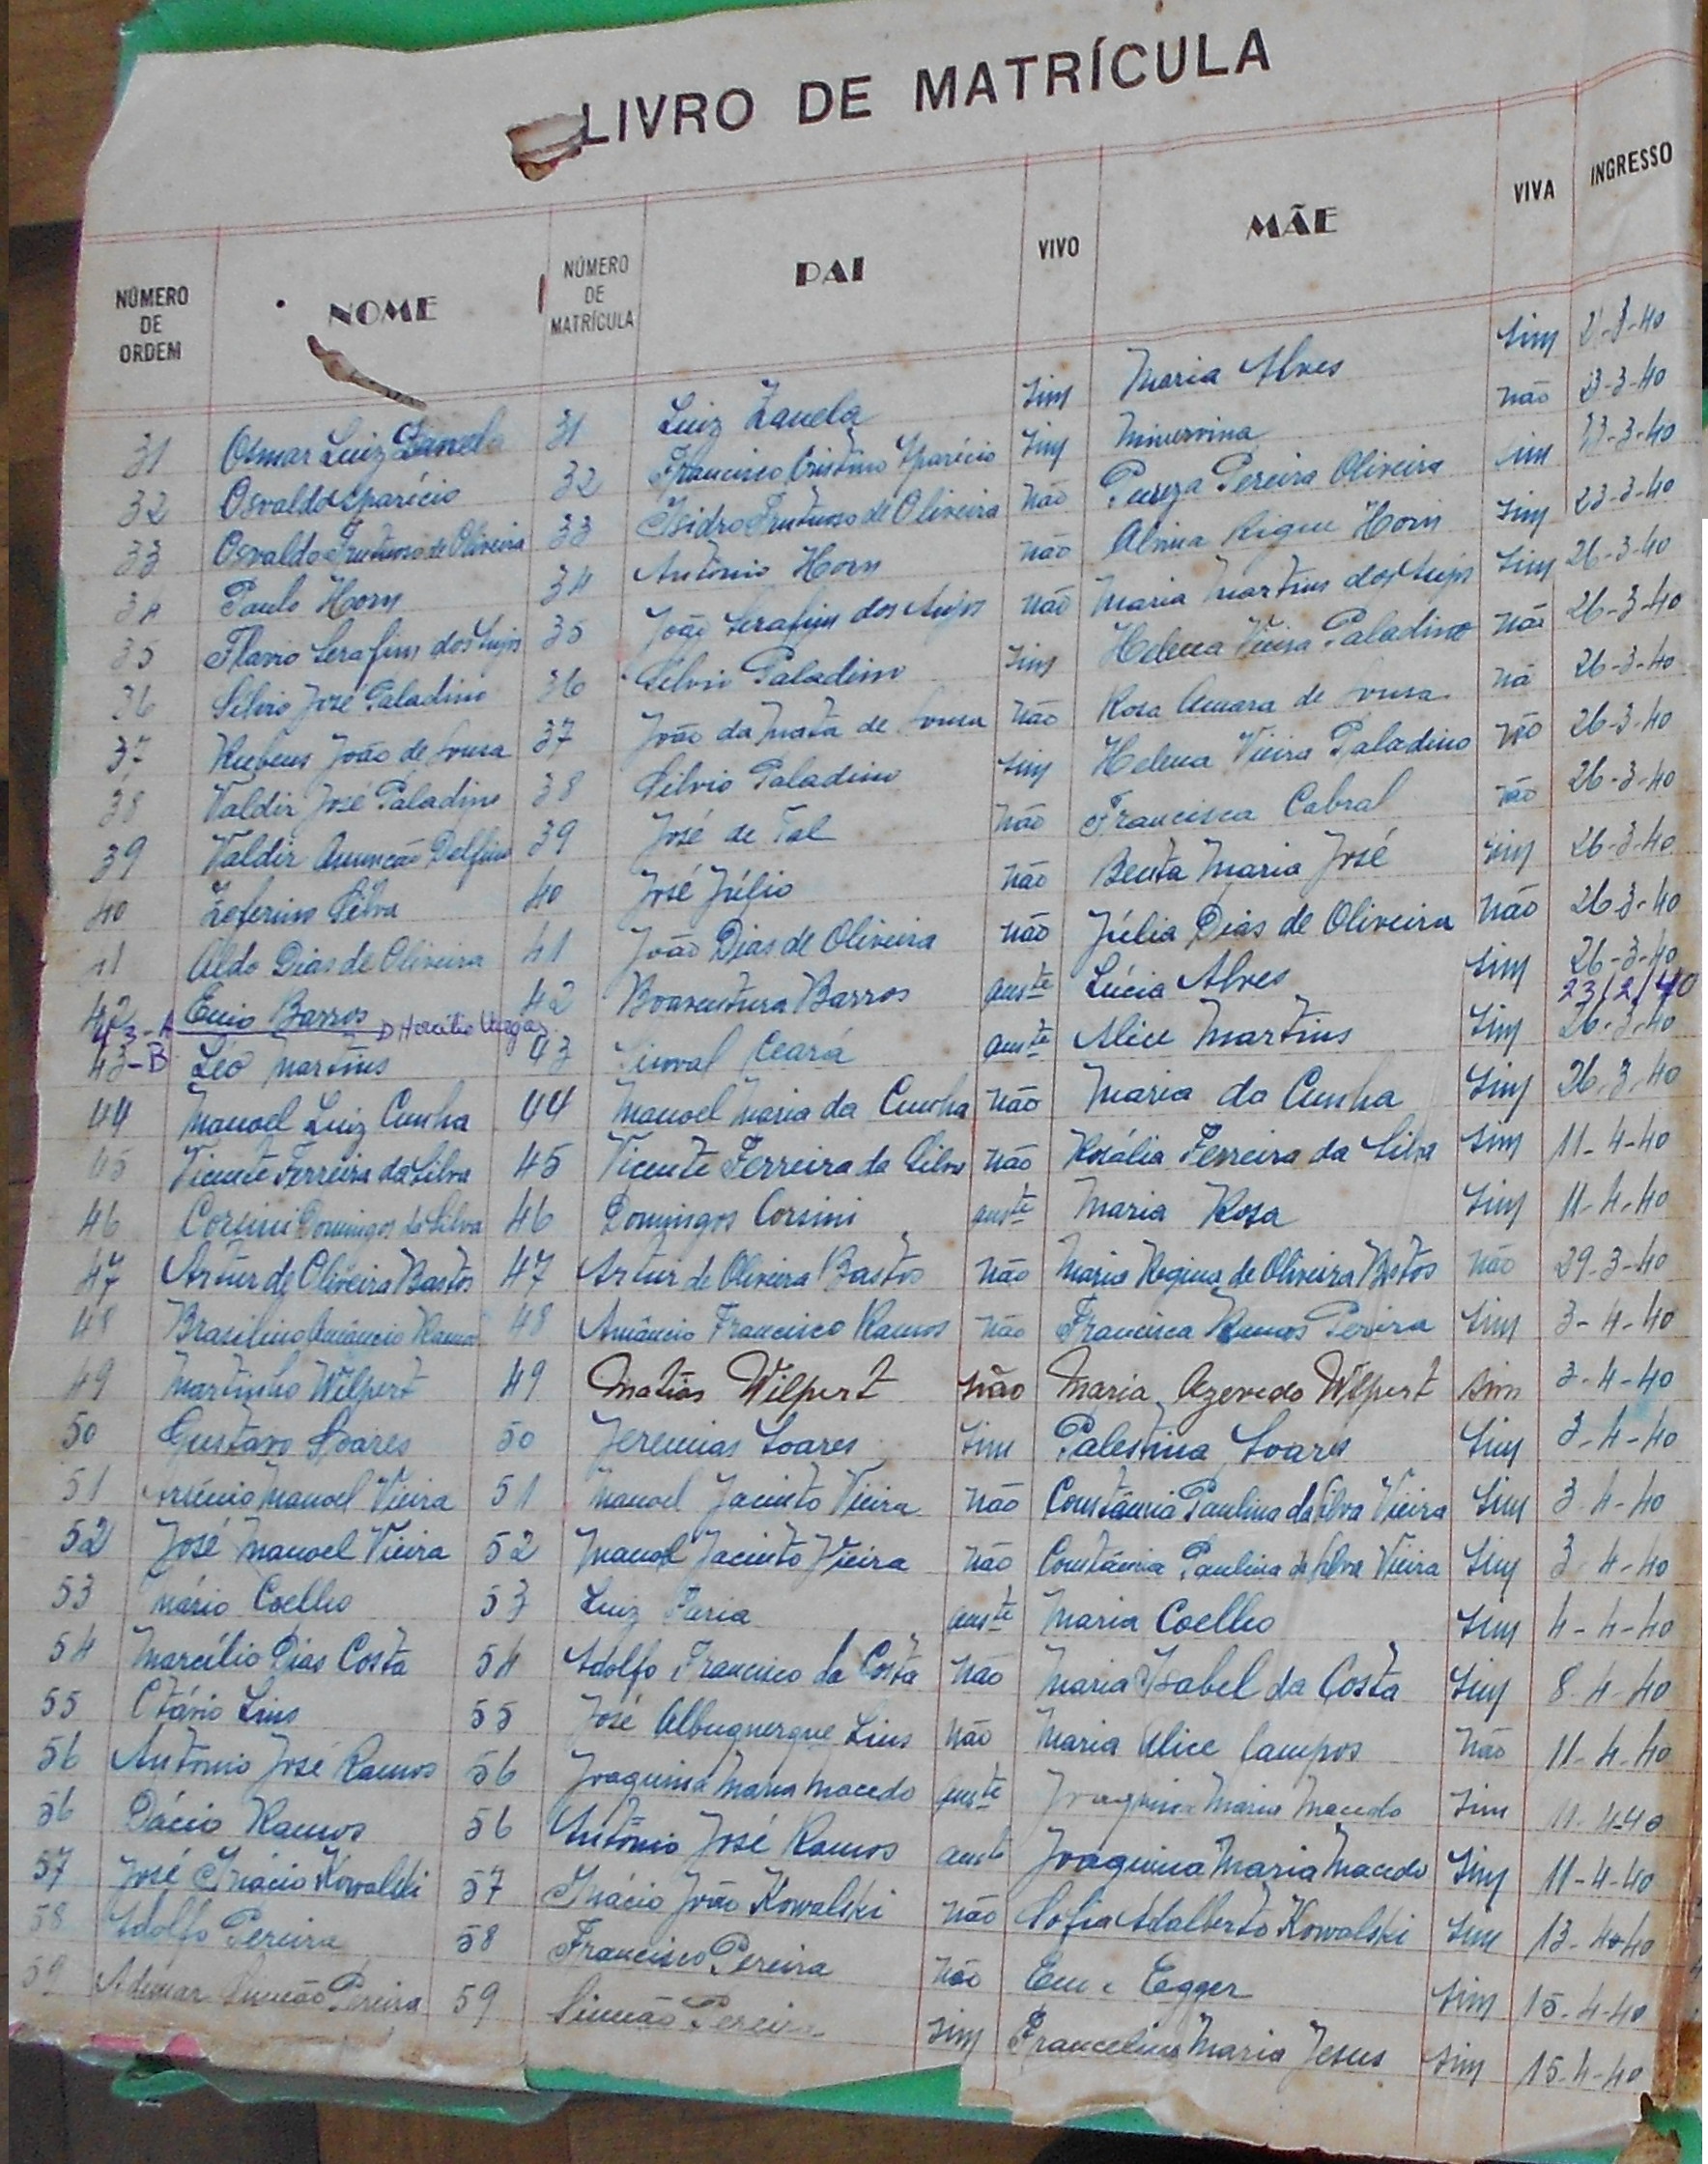 LIVRO DE MATRÍCULA
NÚMERO DE ORDEM NOME NÚMERO DE MATRÍCULA PAI VIVO MÃE VIVA INGRESSO
31 Osmar Luiz Zanela 31 Luiz Zanela sim Maria Alves sim 21-3-40
32 Osvaldo Aparício 32 Francisco Cristino Aparício sim Minervina não 23-3-40
33 Osvaldo Frutuoso de Oliveira 33 Isidro Frutuoso de Oliveira não Pureza Pereira Oliveira sim 23-3-40
34 Paulo Horn 34 Antônio Horn não Horn sim 23-3-40
35 Flavio Serafim dos Anjos 35 João Serafim dos Anjos não Maria Martins dos Anjos sim 26-3-40
36 Silvio José Paladino 36 Silvio Paladino sim Helena Vieira Paladino não 26-3-40
37 Rubens João de Sousa 37 João da Mata de Sousa não Rosa Amara de Sousa não 26-3-40
38 Valdir José Paladino 38 Silvio Paladino sim Helena Vieira Paladino não 26-3-40
39 Valdir Assunção Delfino 39 José de Tal não Francisca Cabral não 26-3-40
40 Zeferino Silva 40 José Júlio não Benta Maria José sim 26-3-40
41 Aldo Dias de Oliveira 41 João Dias de Oliveira não Júlia Dias de Oliveira não 26-3-40
42 Enio Barros 42 Boaventura Barros auste Lúcia Alves sim 26-3-40
43-A D Hercílio Vargas 23/2/40
43-B Léo Martins 43 Ceará auste Alice Martins sim 26-3-40
44 Manoel Luiz Cunha 44 Manoel Maria da Cunha não Maria da Cunha sim 26-3-40
45 Vicente Ferreira da Silva 45 Vicente Ferreira da Silva não Rosália Ferreira da Silva sim 11-4-40
46 Corsini Domingos da Silva 46 Domingos Corsini auste Maria Rosa sim 11-4-40
47 Artur de Oliveira Bastos 47 Artur de Oliveira Bastos não Maria Regina de Oliveira Bastos não 29-3-40
48 Brasilino Amâncio Ramos 48 Amâncio Francisco Ramos não Francisca Ramos Pereira sim 3-4-40
49 Martinho Wilpert 49 Matias Wilpert não Maria Azevedo Wilpert sim 3-4-40
50 Gustavo Soares 50 Jeremias Soares sim Palestina Soares sim 3-4-40
51 Arsênio Manoel Vieira 51 Manoel Jacinto Vieira não Constância Paulina da Silva Vieira sim 3-4-40
52 José Manoel Vieira 52 Manoel Jacinto Vieira não Constância Paulina da Silva Vieira sim 3-4-40
53 Mário Coelho 53 Luiz Faria auste Maria Coelho sim 4-4-40
54 Marcílio Dias Costa 54 Adolfo Francisco da Costa não Maria Isabel da Costa sim 8-4-40
55 Otávio Lins 55 José Albuquerque Lins não Maria Alice Campos não 11-4-40
56 Antônio José Ramos 56 Joaquina Maria Macedo auste Joaquina Maria Macedo sim 11-4-40
56 Dácio Ramos 56 Antônio José Ramos auste Joaquina Maria Macedo sim 11-4-40
57 José Inácio Kowalski 57 Inácio João Kowalski não Sofia Adalberto Kowalski sim 13-4-40
58 Adolfo Pereira 58 Francisco Pereira não Egger sim 15-4-40
59 Ademar Simeão Pereira 59 Simeão Pereira sim Francelina Maria Jesus sim 15-4-40